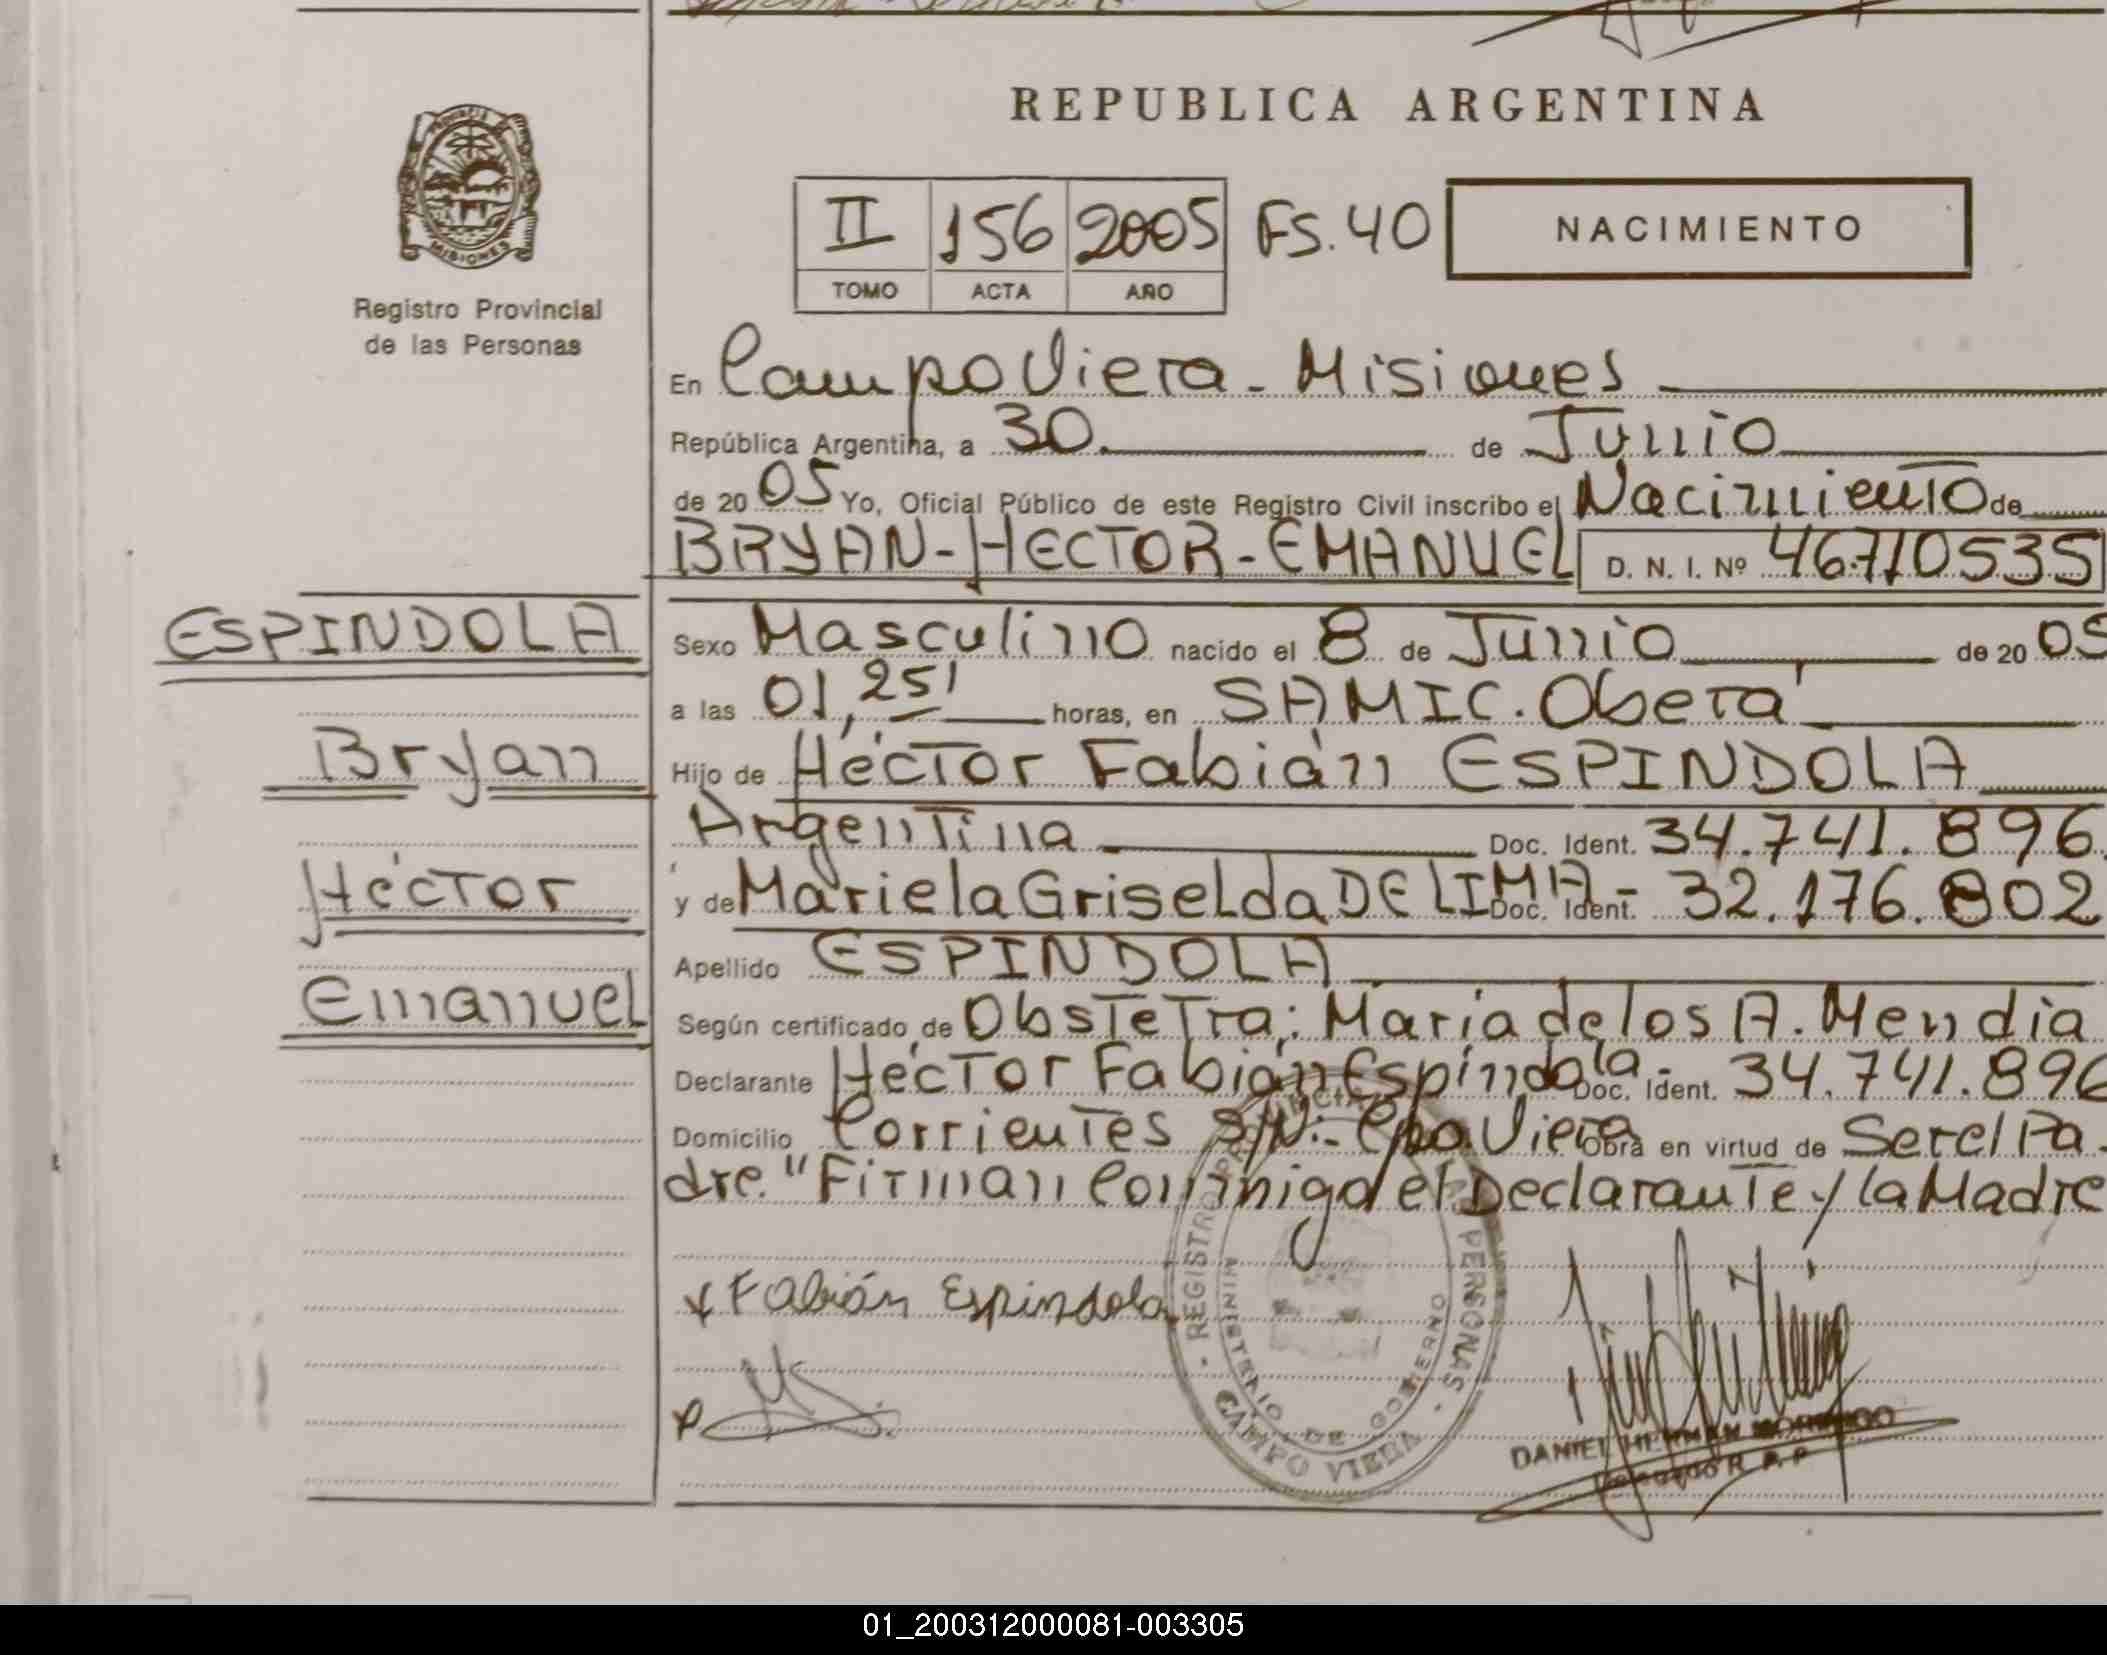 REPUBLICA ARGENTINA
PROVINCIA DE MISIONES
Registro Provincial
de las Personas
II 156 2005 FS.40 NACIMIENTO
TOMO ACTA AÑO
En Campo Viera - Misiones
República Argentina, a 30. de Junio
de 20 05 Yo, Oficial Público de este Registro Civil inscribo el Nacimiento de
BRYAN-HECTOR-EMANUEL D. N. I. Nº 46.710535
ESPINDOLA
Bryan
Héctor
Emanuel
Sexo Masculino nacido el 8 de Junio de 20 05
a las 01,25' horas, en SAMIC. Oberá
Hijo de Héctor Fabián ESPINDOLA
Argentina Doc. Ident. 34.741.896.
y de Mariela Griselda DE LIMA - Doc. Ident. 32.176.802
Apellido ESPINDOLA
Según certificado de Obstetra: María de los A. Mendia
Declarante Héctor Fabián Espíndola - Doc. Ident. 34.741.896
Domicilio Corrientes S/N:- Cpo. Viera Obra en virtud de Ser el Pa-
dre." Firman Conmigo el Declarante y la Madre
REGISTRO PROVINCIAL PERSONAS
MINISTERIO DE GOBIERNO
CAMPO VIERA
Fabián Espindola
DANIEL HERNAN
Delegado R. P. P
01_200312000081-003305